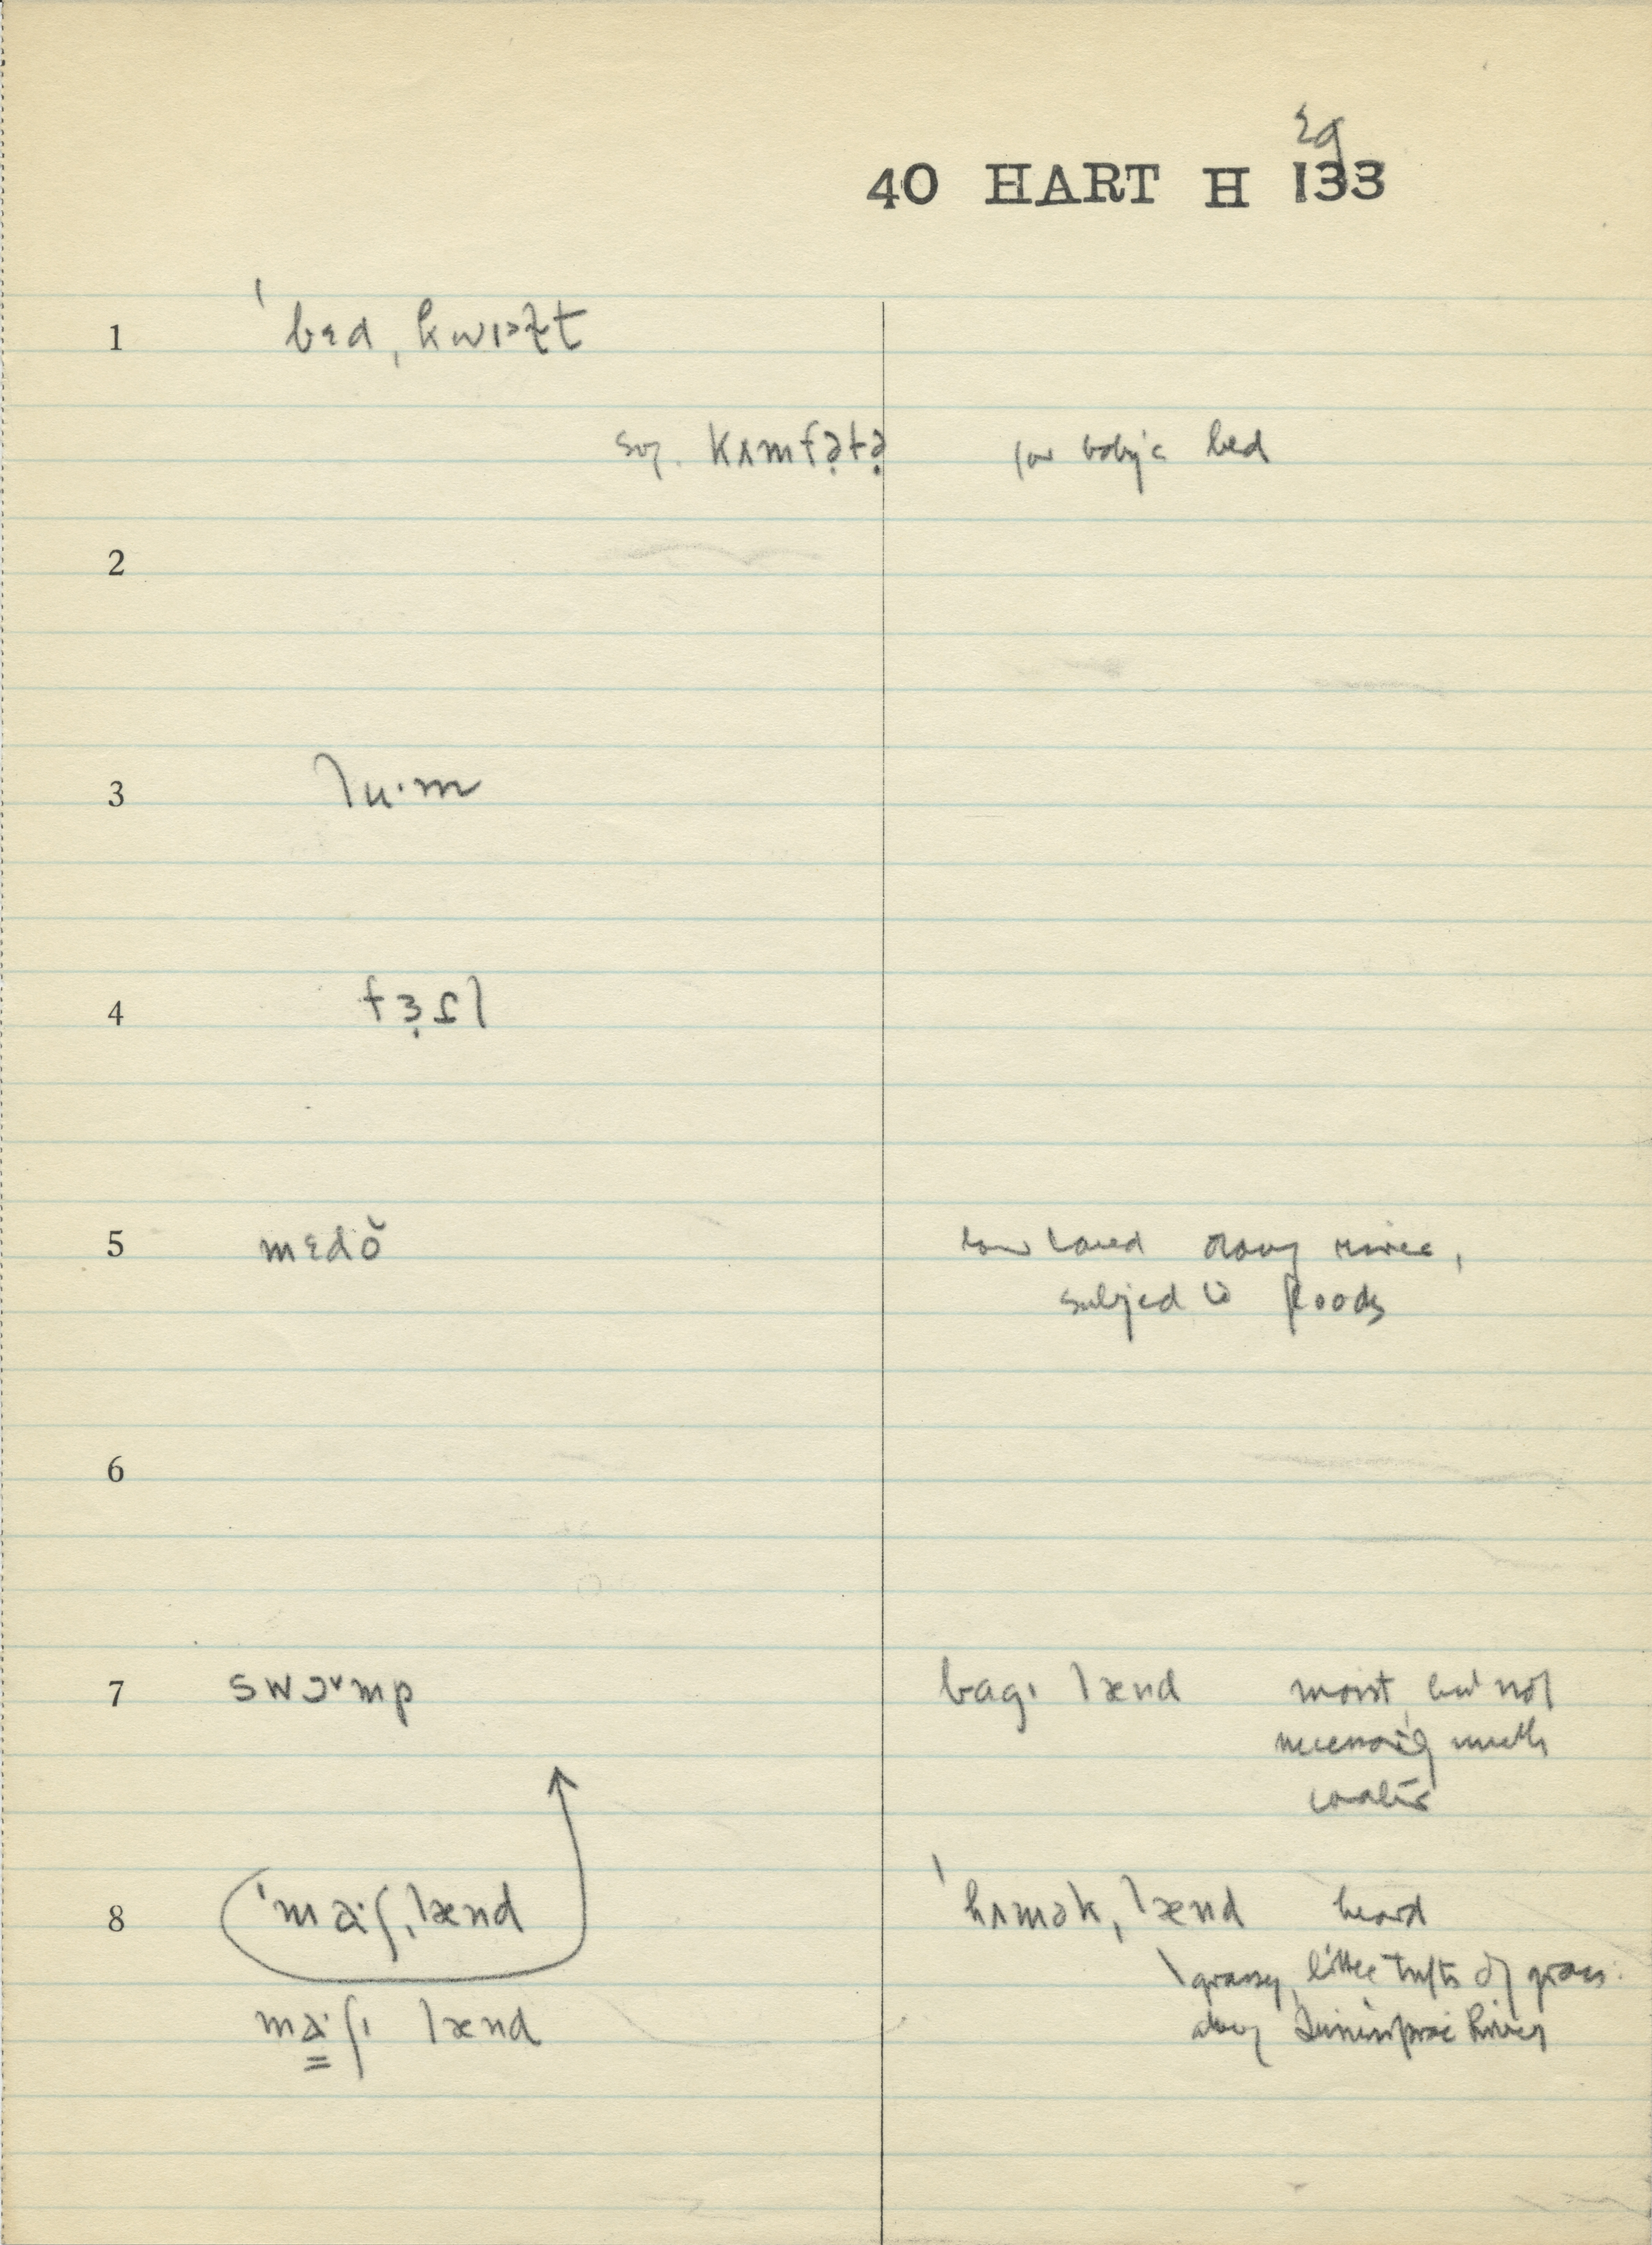 29
40 HART H 133
1 ˈbɛd ˌkwɪɔɫt
sug. kʌmfə̣tə̣ for baby's bed
2
3 lu·m
4
5 mɛdŏ low land along river,
subject to floods
6
7 swɔ˅mp bagɪ lænd moist, but not
necessarily much
water
8 ˈmaˑʃˌlænd ˈhʌməkˌlænd heard
grassy, little tufts of grass
maˑʃɪ lænd along River